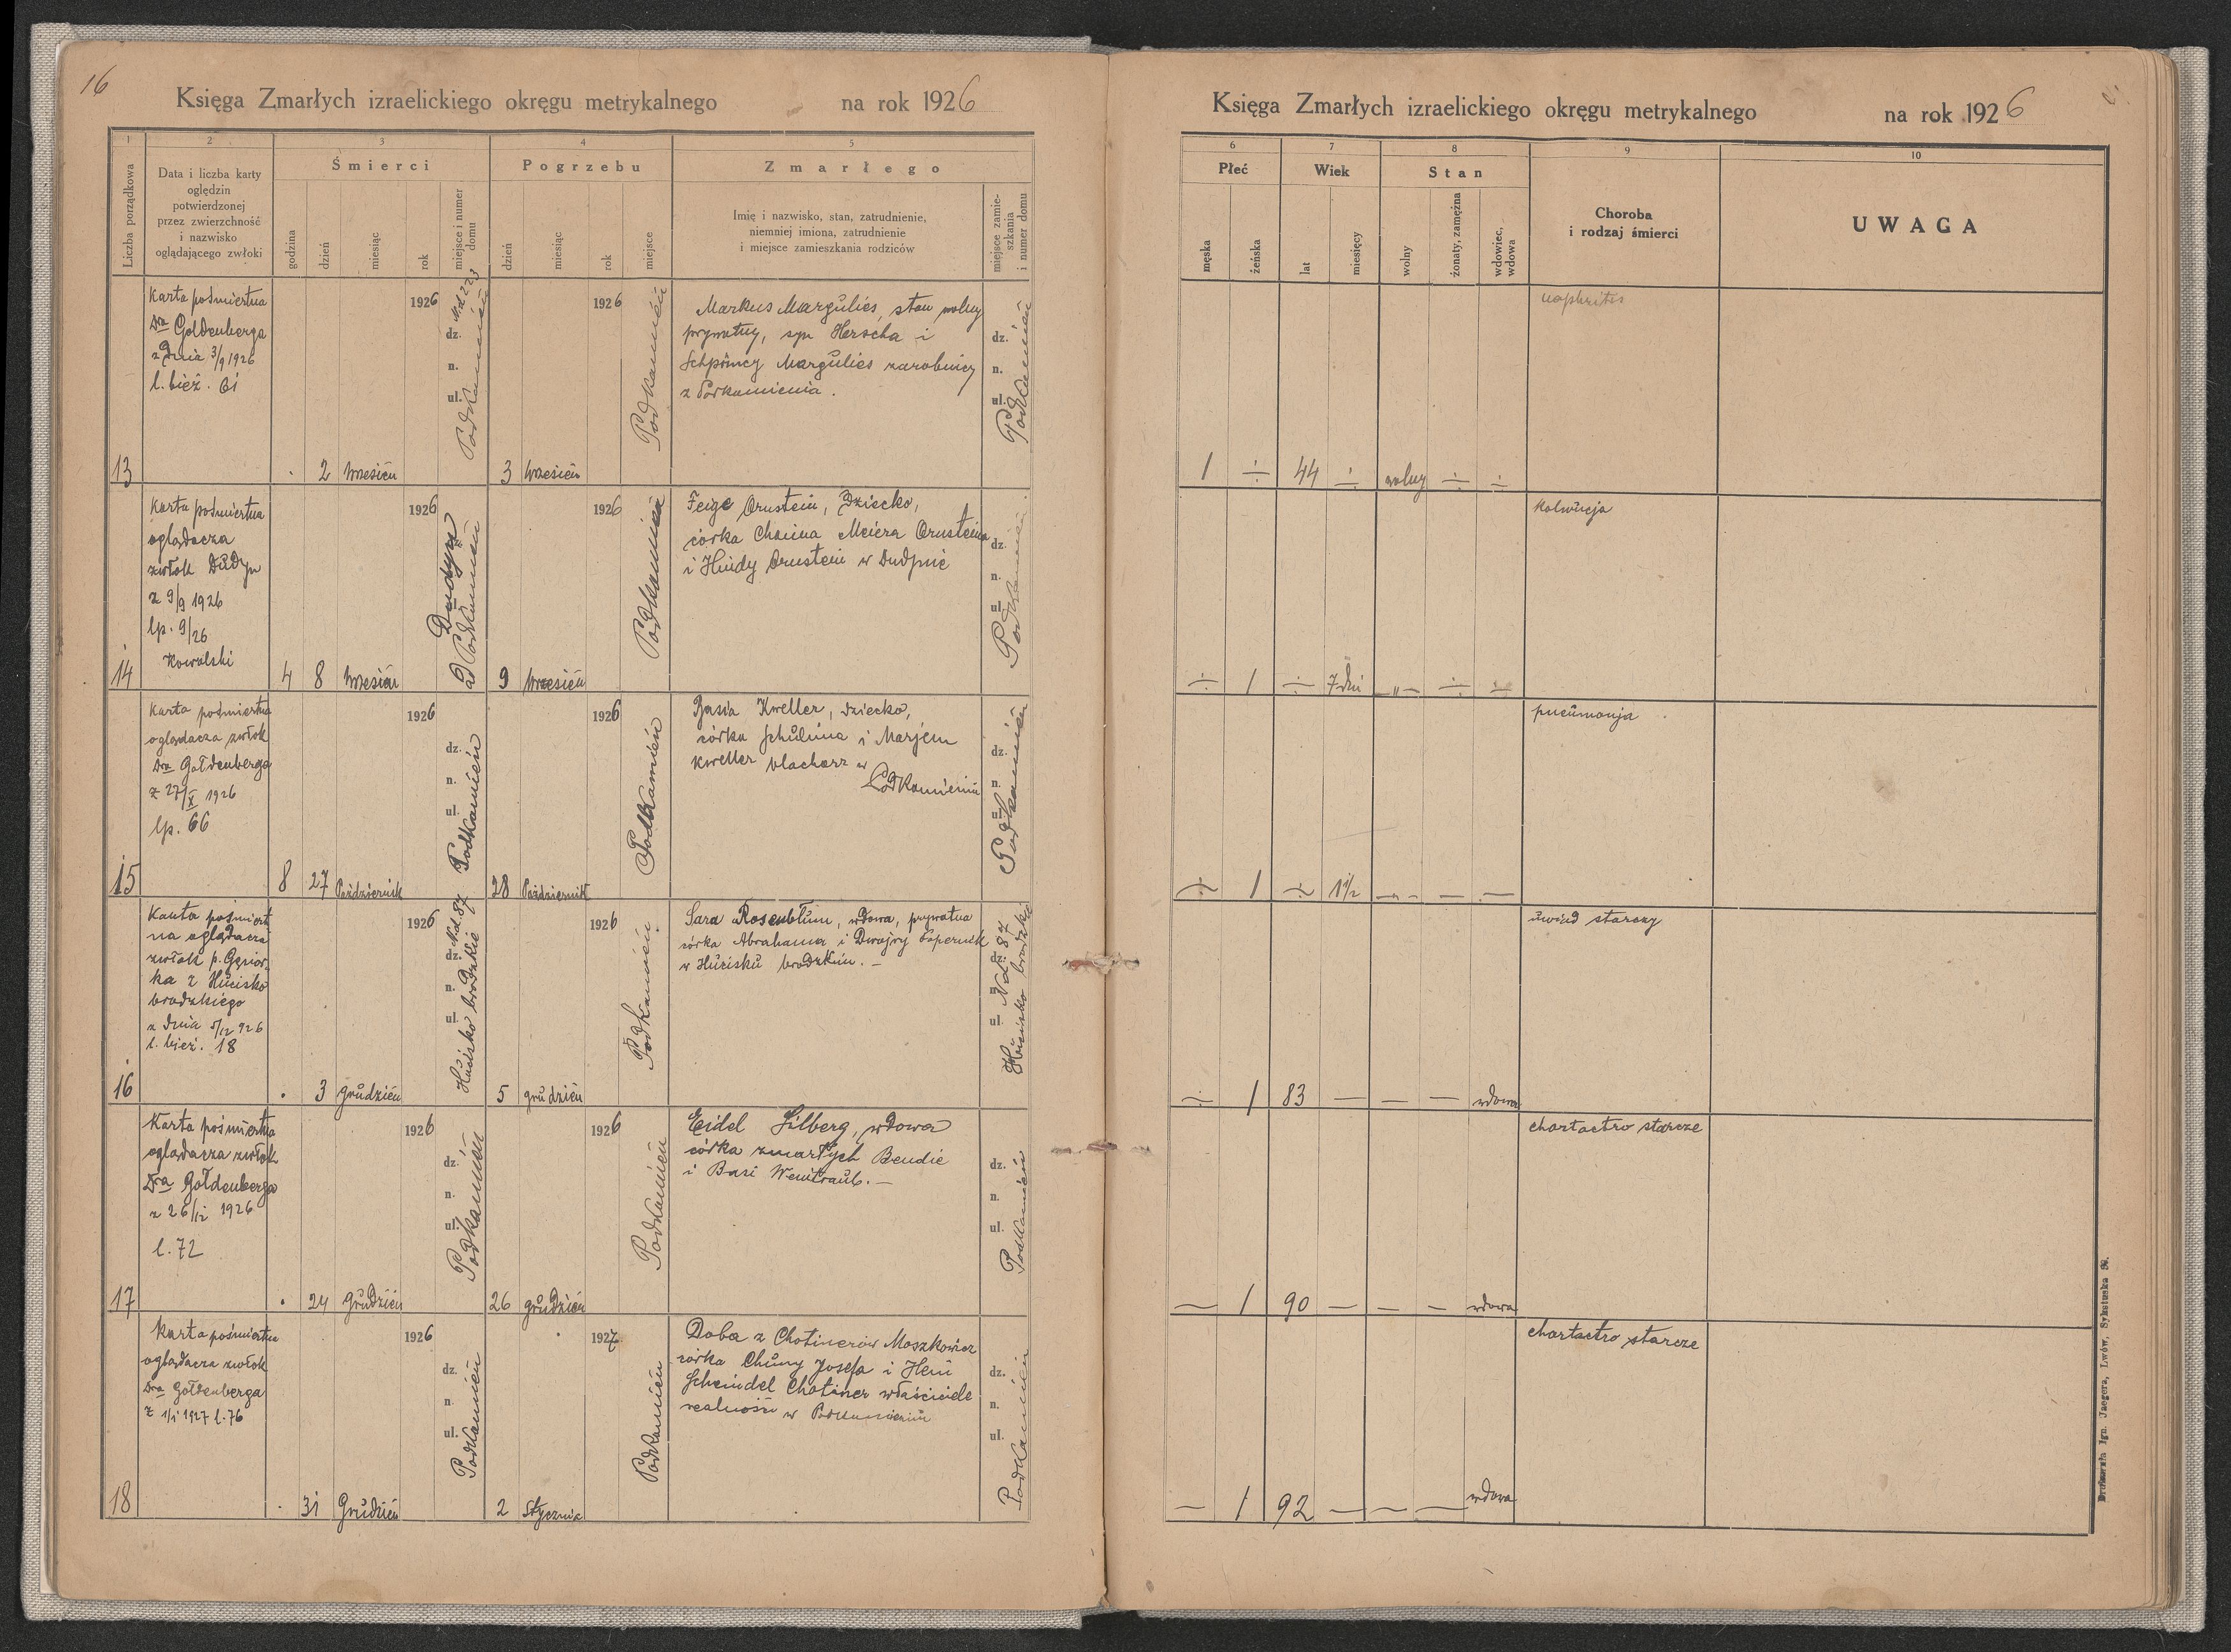 16
Księga Zmarłych izraelickiego okręgu metrykalnego na rok 1926
1 2 3 4 5
Liczba porządkowa
Data i liczba karty
oględzin
potwierdzonej
przez zwierzchność
i nazwisko
oglądającego zwłoki
Śmierci
godzina
dzień
miesiąc
rok
miejsce i numer
domu
Pogrzebu
dzień
miesiąc
rok
miejsce
Zmarłego
Imię i nazwisko, stan, zatrudnienie,
niemniej imiona, zatrudnienie
i miejsce zamieszkania rodziców
miejsce zamie-
szkania
i numer domu
13
Karta pośmiertna
Dra Goldenberga
z dnia 3/9 1926
l. bież. 61
. 2 Wrzesień 1926
dz.
n.
ul.
Nd 223
Podkamień
3 Wrzesień 1926
Podkamień
Markus Margulies, stan wolny
prywatny, syn Herscha i
Margulies zarobnicy
z Podkamienia.
dz.
n.
ul.
Podkamień
14
Karta pośmiertna
oglądacza
zwłok Dudyn
z 9/9 1926
lp. 9/26
Kowalski
4 8 Wrzesień 1926
Dudyn
ad Podkamień
9 Wrzesień 1926
Podkamień
Feige Ornstein, Dziecko,
córka Chaima Meiera Ornsteina
i Hindy Ornstein w Dudynie
dz.
n.
ul.
Podkamień
15
Karta pośmiertna
oglądacza zwłok
Dra Gołdenberga
z 27/X 1926
lp. 66
8 27 Październik 1926
dz.
n.
ul.
Podkamień
28 Październik 1926
Podkamień
Basia Kweller, dziecko,
córka Schulima i Marjem
Kweller blacharz w
Podkamieniu
dz.
n.
ul.
Podkamień
16
Karta pośmiert
na oglądacza
zwłok p. Gąsior-
ka z Hucisko
brodzkiego
z dnia 5/12 926
l. bież. 18
. 3 grudzień 1926
dz.
n.
ul.
Nd. 87
Hucisko brodzkie
5 grudzień 1926
Podkamień
Sara Rosenblum, wdowa, prywatna
córka Abrahama i Dwojry Kopernik
w Hucisku brodzkim. –
dz.
n.
ul.
Nd. 87
Hucisko brodzkie
17
Karta pośmiertna
oglądacza zwłok
Dra Gołdenberga
z 26/12 1926
l. 72
. 24 Grudzień 1926
dz.
n.
ul.
Podkamień
26 grudzień 1926
Podkamień
Eidel Silberg, wdowa
córka zmarłych Bendie
i Basi Weintraub. –
dz.
n.
ul.
Podkamień
18
Karta pośmiertna
oglądacza zwłok
Dra Gołdenberga
z 1/1 1927 l. 76
. 31 Grudzień 1926
dz.
n.
ul.
Podkamień
2 Stycznia 1927
Podkamień
Doba z Chotinerów Moszkowicz
córka Chuny Josefa i Heni
Scheindel Chotiner właściciele
realności w Podkamieniu
dz.
n.
ul.
Podkamień
Księga Zmarłych izraelickiego okręgu metrykalnego na rok 1926
6 7 8 9 10
Płeć
męska
żeńska
Wiek
lat
miesięcy
Stan
wolny
żonaty, zamężna
wdowiec,
wdowa
Choroba
i rodzaj śmierci
UWAGA
1 ÷ 44 ÷ wolny ÷ ÷
naphritis
÷ 1 ÷ 7 dni –„– ÷ ÷
÷ 1 ÷ 1½ – – – –
pneumonja
÷ 1 83 – – – wdowa
uwiąd starczy
– 1 90 – – – wdowa
chartactro starcze
– 1 92 – – – wdowa
chartactro starcze
Drukarnia Ign. Jaegera, Lwów, Sykstuska